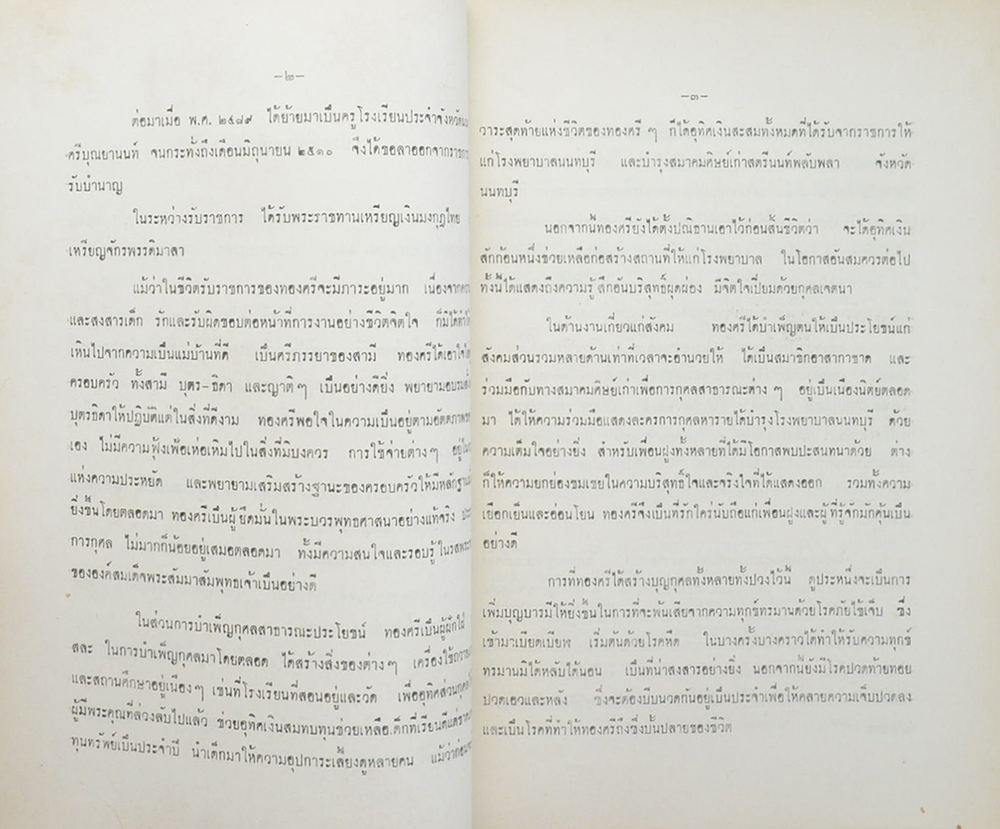 -๒-
ต่อมาเมื่อ พ.ศ. ๒๔๘๙ ได้ย้ายมาเป็นครูโรงเรียนประจำจังหวัด
ศรีบุณยานนท์ จนกระทั่งถึงเดือนมิถุนายน ๒๕๑๐ จึงได้ขอลาออกจากราชการ
รับบำนาญ
ในระหว่างรับราชการ ได้รับพระราชทานเหรียญเงินมงกุฎไทย
เหรียญจักรพรรดิมาลา
แม้ว่าในชีวิตรับราชการของทองศรีจะมีภาระอยู่มาก เนื่องจาก
และสงสารเด็ก รักและรับผิดชอบต่อหน้าที่การงานอย่างชีวิตจิตใจ ก็มิได้
เหินไปจากความเป็นแม่บ้านที่ดี เป็นศรีภรรยาของสามี ทองศรีได้เอาใจ
ครอบครัว ทั้งสามี บุตร-ธิดา และญาติๆ เป็นอย่างดียิ่ง พยายามอบรม
บุตรธิดาให้ปฏิบัติแต่ในสิ่งที่ดีงาม ทองศรีพอใจในความเป็นอยู่ตามอัตตภาพ
เอง ไม่มีความฟุ้งเฟ้อเห่อเหิมไปในสิ่งที่มิบังควร การใช้จ่ายต่างๆ อยู่ใน
แห่งความประหยัด และพยายามเสริมสร้างฐานะของครอบครัวให้มีหลักฐาน
ยิ่งขึ้นโดยตลอดมา ทองศรีเป็นผู้ยึดมั่นในพระบวรพุทธศาสนาอย่างแท้จริง
การกุศล ไม่มากก็น้อยอยู่เสมอตลอดมา ทั้งมีความสนใจและรอบรู้ในรสพระ
ขององค์สมเด็จพระสัมมาสัมพุทธเจ้าเป็นอย่างดี
ในส่วนการบำเพ็ญกุศลสาธารณะประโยชน์ ทองศรีเป็นผู้ฝักใฝ่
สละ ในการบำเพ็ญกุศลมาโดยตลอด ได้สร้างสิ่งของต่างๆ เครื่องใช้
และสถานศึกษาอยู่เนืองๆ เช่นที่โรงเรียนที่สอนอยู่และวัด เพื่ออุทิศส่วนกุศล
ผู้มีพระคุณที่ล่วงลับไปแล้ว ช่วยอุทิศเงินสมทบทุนช่วยเหลือเด็กที่เรียนดีแต่
ทุนทรัพย์เป็นประจำปี นำเด็กมาให้ความอุปการะเลี้ยงดูหลายคน แม้ว่าก่อน
-๓-
วาระสุดท้ายแห่งชีวิตของทองศรี ๆ ก็ได้อุทิศเงินสะสมทั้งหมดที่ได้รับจากราชการให้
แก่โรงพยาบาลนนทบุรี และบำรุงสมาคมศิษย์เก่าสตรีนนท์พลับพลา จังหวัด
นนทบุรี
นอกจากนี้ทองศรียังได้ตั้งปณิธานเอาไว้ก่อนสิ้นชีวิตว่า จะได้อุทิศเงิน
สักก้อนหนึ่งช่วยเหลือก่อสร้างสถานที่ให้แก่โรงพยาบาล ในโอกาสอันสมควรต่อไป
ทั้งนี้ได้แสดงถึงความรู้สึกอันบริสุทธิ์ผุดผ่อง มีจิตใจเปี่ยมด้วยกุศลเจตนา
ในด้านงานเกี่ยวแก่สังคม ทองศรีได้บำเพ็ญตนให้เป็นประโยชน์แก่
สังคมส่วนรวมหลายด้านเท่าที่เวลาจะอำนวยให้ ได้เป็นสมาชิกอาสากาชาด และ
ร่วมมือกับทางสมาคมศิษย์เก่าเพื่อการกุศลสาธารณะต่าง ๆ อยู่เป็นเนืองนิตย์ตลอด
มา ได้ให้ความร่วมมือแสดงละครการกุศลหารายได้บำรุงโรงพยาบาลนนทบุรี ด้วย
ความเต็มใจอย่างยิ่ง สำหรับเพื่อนฝูงทั้งหลายที่ได้มีโอกาสพบปะสนทนาด้วย ต่าง
ก็ให้ความยกย่องชมเชยในความบริสุทธิ์ใจและจริงใจที่ได้แสดงออก รวมทั้งความ
เยือกเย็นและอ่อนโยน ทองศรีจึงเป็นที่รักใคร่นับถือแก่เพื่อนฝูงและผู้ที่รู้จักมักคุ้นเป็น
อย่างดี
การที่ทองศรีได้สร้างบุญกุศลทั้งหลายทั้งปวงไว้นี้ ดูประหนึ่งจะเป็นการ
เพิ่มบุญบารมีให้ยิ่งขึ้นในการที่จะพ้นเสียจากความทุกข์ทรมานด้วยโรคภัยไข้เจ็บ ซึ่ง
เข้ามาเบียดเบียฬ เริ่มต้นด้วยโรคหืด ในบางครั้งบางคราวได้ทำให้รับความทุกข์
ทรมานมิได้หลับได้นอน เป็นที่น่าสงสารอย่างยิ่ง นอกจากนี้ยังมีโรคปวดท้ายทอย
ปวดเอวและหลัง ซึ่งจะต้องบีบนวดกันอยู่เป็นประจำเพื่อให้คลายความเจ็บปวดลง
และเป็นโรคที่ทำให้ทองศรีถึงซึ่งบั้นปลายของชีวิต